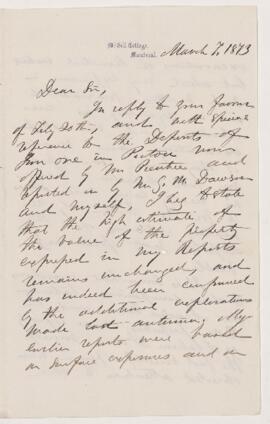 McGill College,
Montreal.
March 7, 1873
Dear Sir,
In reply to your favour
of Feby 20th, and with special
reference to the Deposits of
Iron ore in Pictou now
opened by Mr and
reported on by Mr G. M. Dawson
and myself, I beg to state
that the high estimate of
the value of the property
expressed in my Reports
remains unchanged, and
has indeed been confirmed
by the additional explorations
made last autumn. My
earlier reports were based
on surface exposures and on